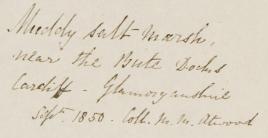 Muddy salt marsh,
near the Bute Docks
Cardiff - Glamorganshire
Sept. 1850. Coll. M. M. Atwood